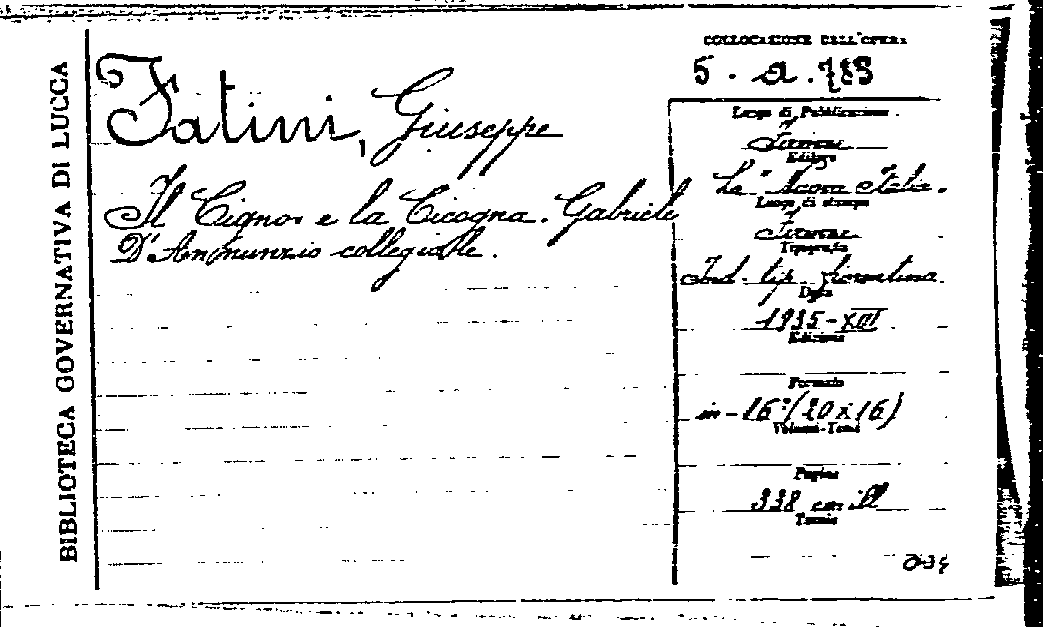 BIBLIOTECA GOVERNATIVA DI LUCCA
Fatini, Giuseppe
Il Cigno e la Cicogna. Gabriele
D'Annunzio collegiale.
COLLOCAZIONE DELL'OPERA
5. a. 783
Luogo di Pubblicazione
Firenze
Editore
"La Nuova Italia".
Luogo di stampa
Firenze
Tipografia
Ind. tip. fiorentina
Data
1935-XIII
Edizione
Formato
in-16° (20x16)
Volumi-Tomi
Pagine
338 con ill